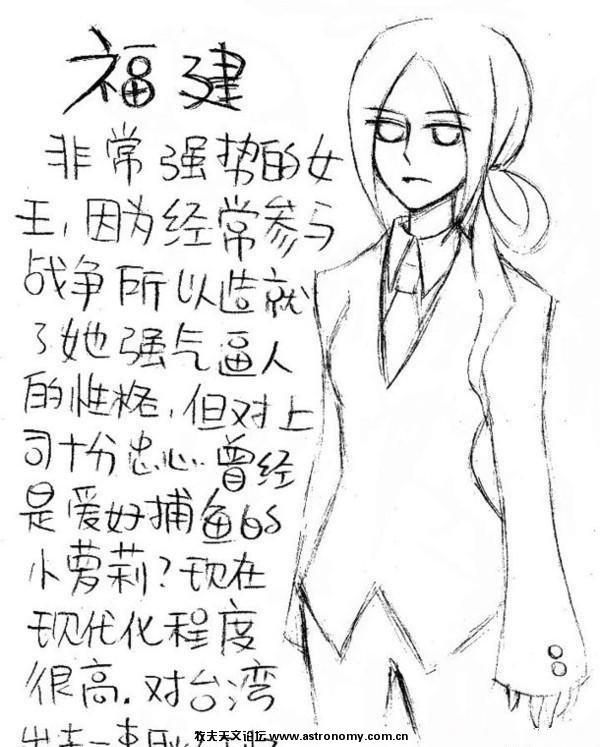 福建
非常强势的女
王,因为经常参与
战争所以造就
了她强气逼人
的性格,但对上
司十分忠心.曾经
是爱好捕鱼的
小萝莉?现在
现代化程度
很高.对台湾
牧夫天文论坛 www.astronomy.com.cn